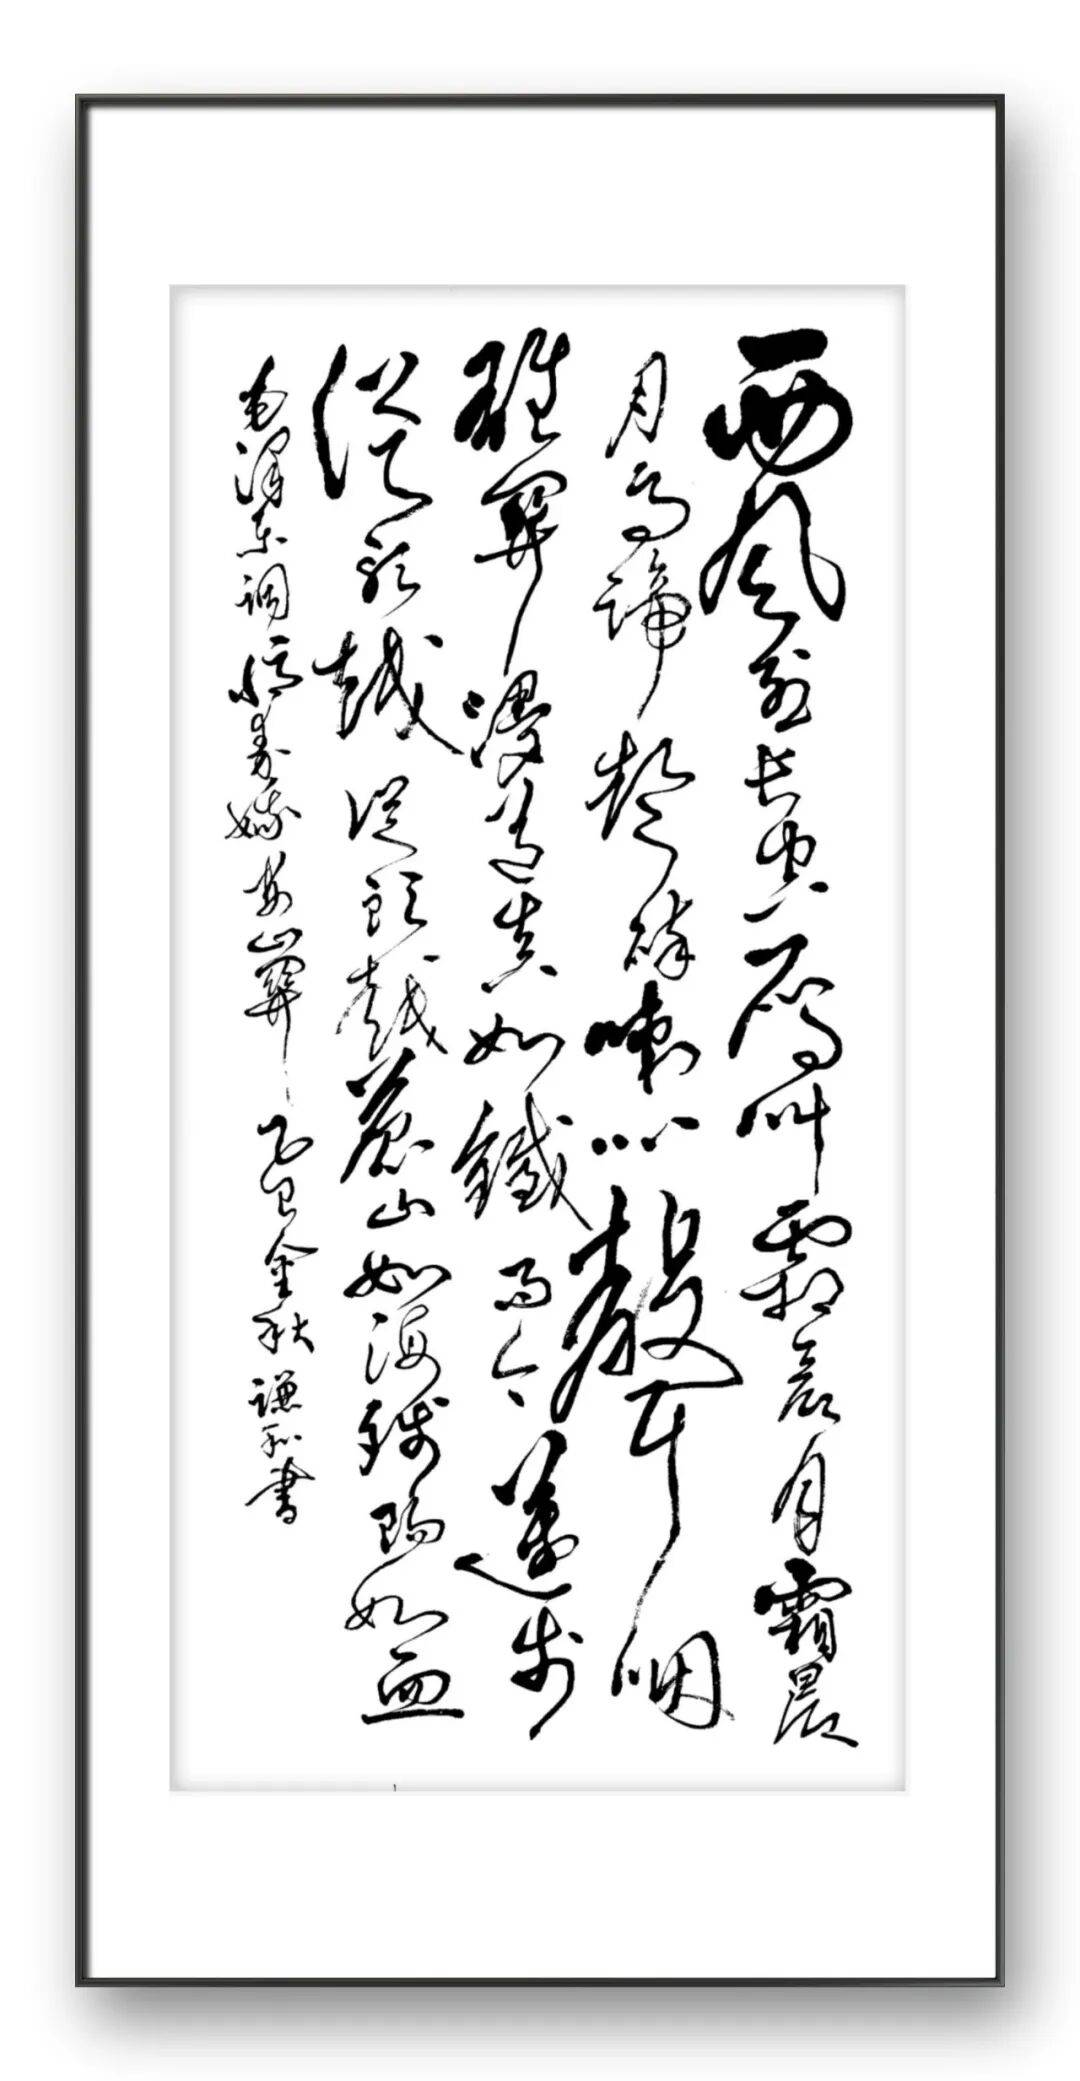 西風烈長空雁叫霜晨月霜晨
月馬蹄聲碎喇叭聲咽
雄關漫道真如鐵而今邁步
從頭越從頭越蒼山如海殘陽如血
毛澤東詞憶秦娥婁山關乙巳金秋謙和書